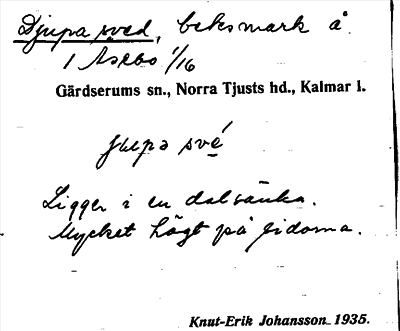 Djupa sved, betesmark å
1 Åsebo 1/16
Gärdserums sn., Norra Tjusts hd., Kalmar l.
jʉpa své
Ligger i en dalsänka.
Mycket högt på sidorna.
Knut-Erik Johansson 1935.